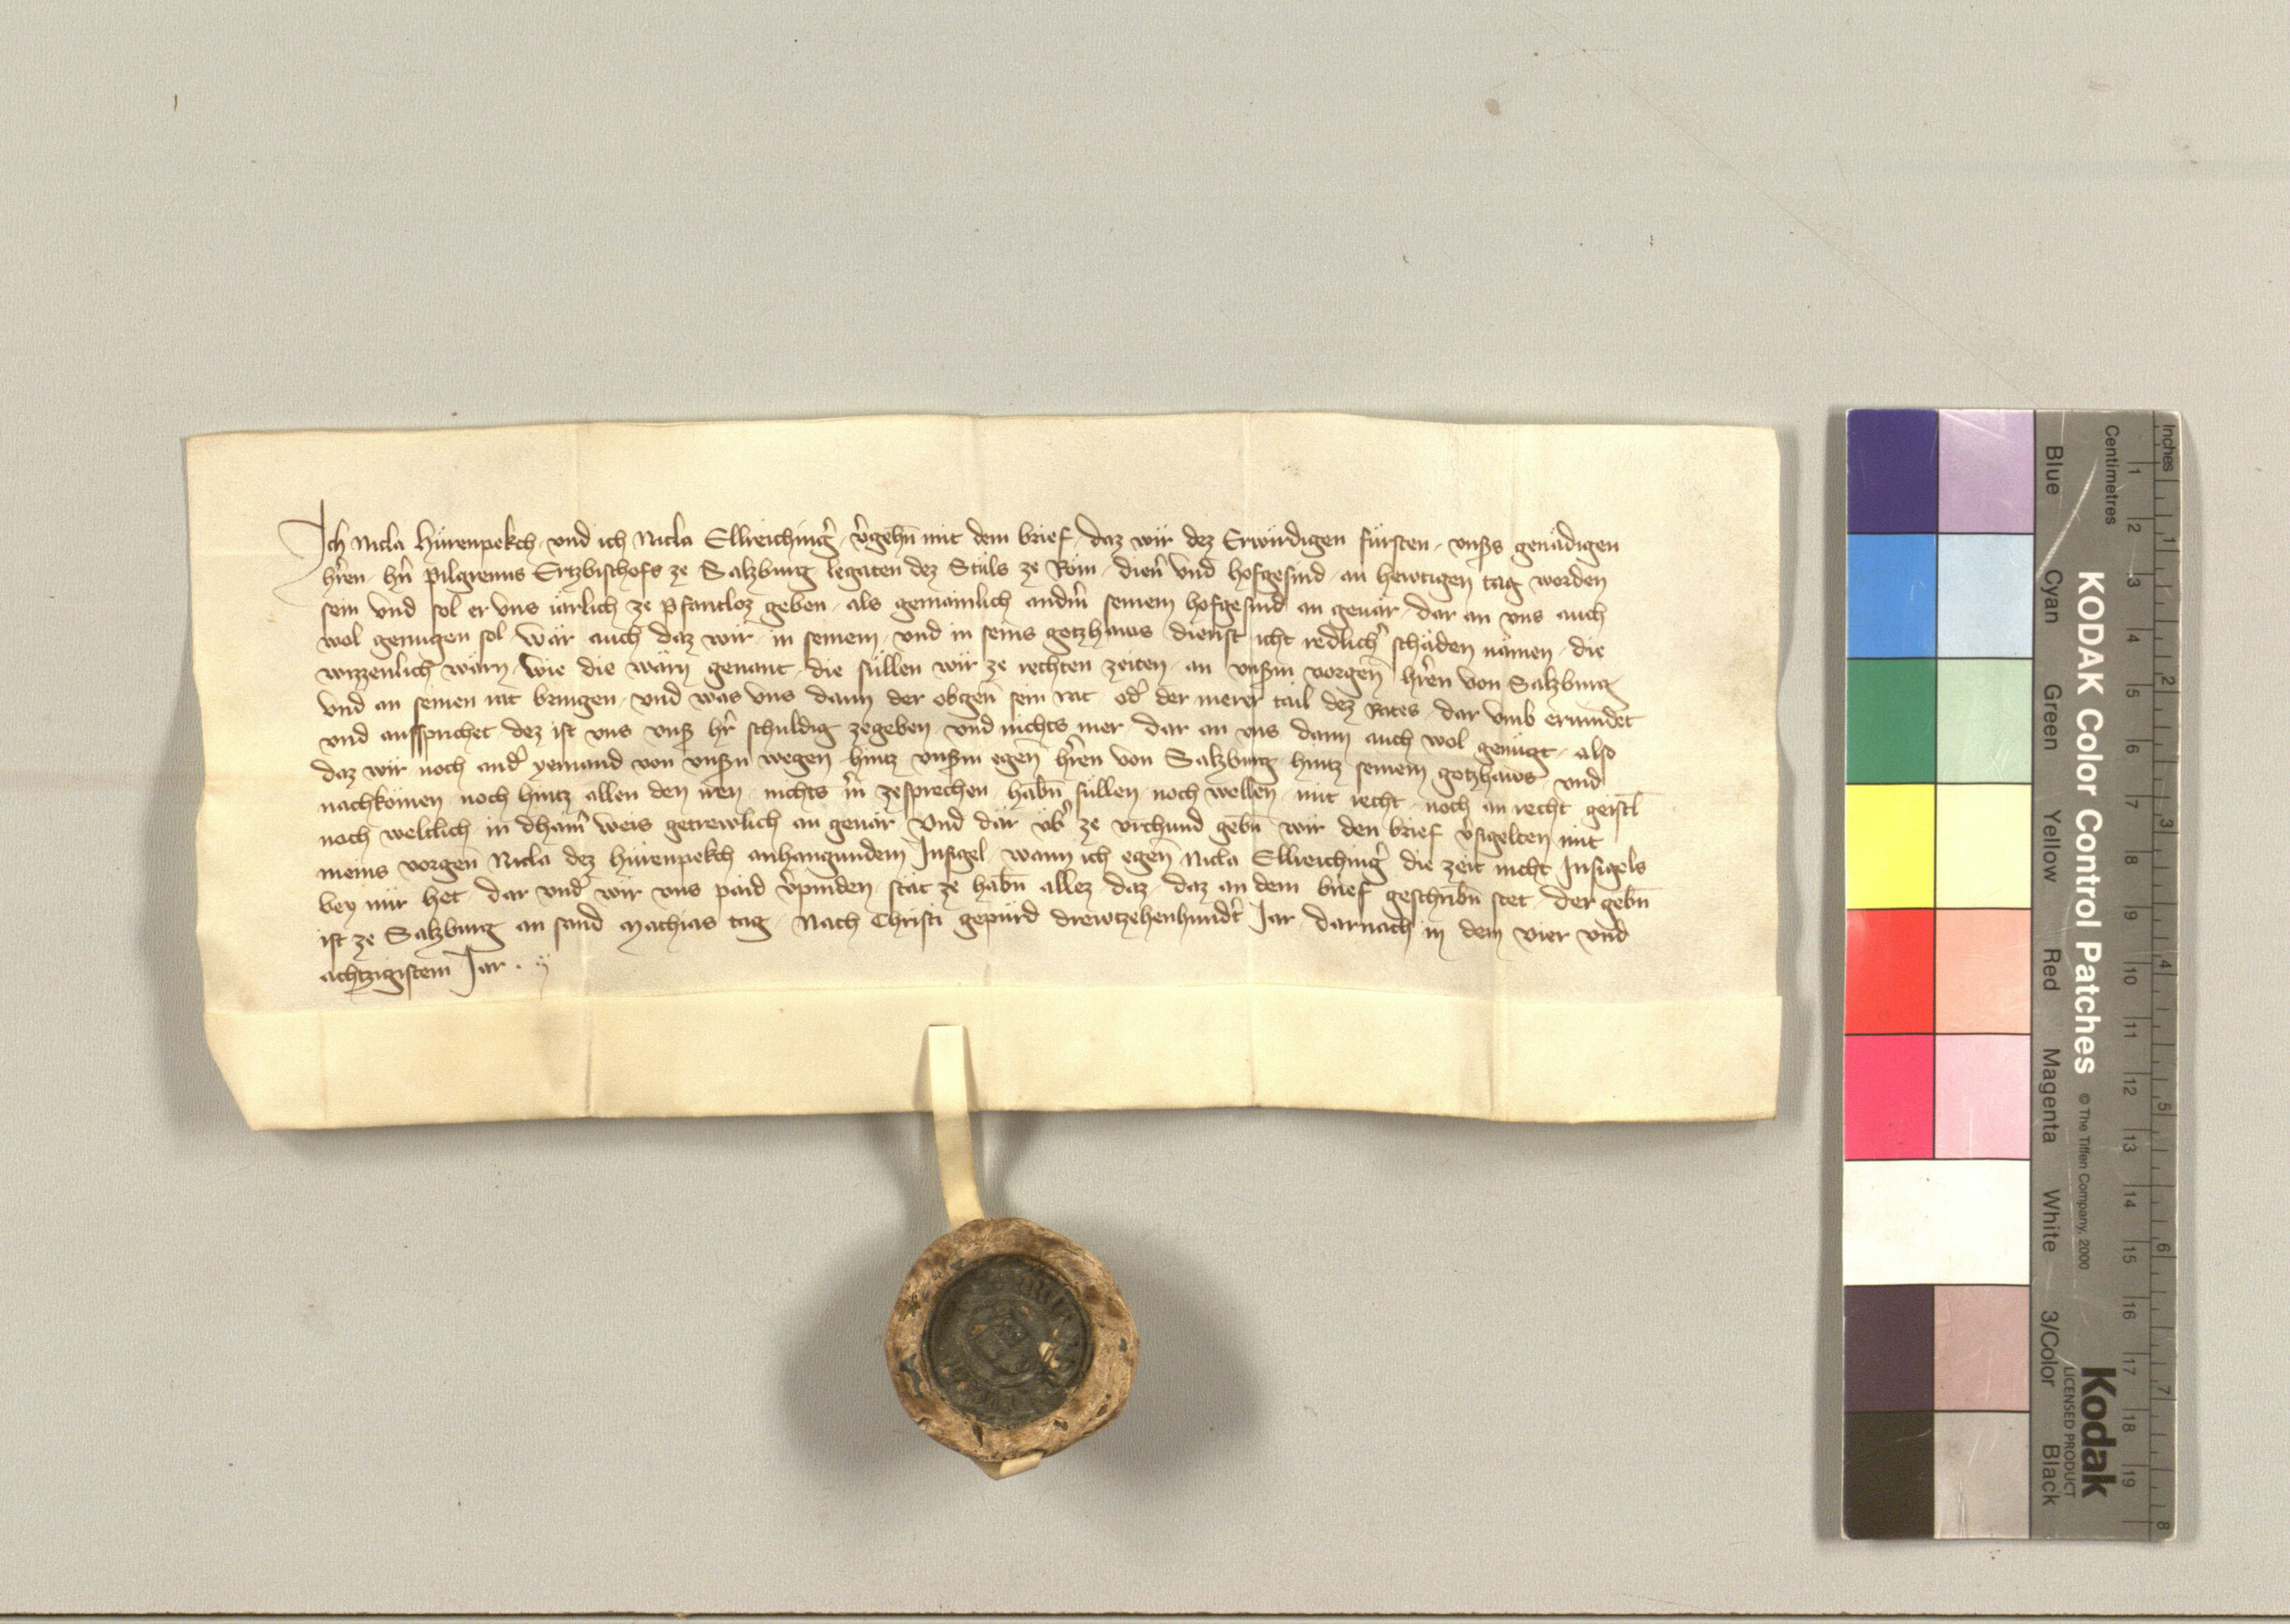 Ich Nicla Hürenpekch · und ich Nicla Ellreiching͛ · v͛gehn̄ mit dem brief · daz wir dez Erwirdigen fürsten · vnsers genädigen
h͛ren · hn̄ Pilgreims Ertzbischofs ze Salzburg legaten dez Stůls ze Röm · dien͛ und hofgesind · an hewtigen tag worden
sein und sol er uns iärlich ze pfantloz geben · als gemainlich anderm̄ seinem hofgesind an geuär · dar an uns auch
wol genügen sol wär auch daz wir · in seinem · und in seins gotzhaws dienst icht redlich͛ schäden nämen · die
wizzenlich wärn · wie die wärn genant · die süllen wir ze rechten zeiten · an vnserm vorgen̄ h͛ren von Salzburg
und an seinen rat bringen · und was uns dann der obgen̄ sein rat od͛ der merer tail dez Rates · dar umb erfindet
und aussprichet dez ist uns vnser h͛r schuldig zegeben · und nichts mer · dar an uns dann auch wol genügt · also
daz wir noch and͛ yemand von vnsern wegen hintz vnserm egen̄ h͛ren von Salzburg hintz seinem gotzhaws und
nachkömen noch hintz allen den iren · nichts m͛ zesprechen · habn̄ süllen noch wellen · mit recht · noch an recht geistl̄
noch weltlich in dhain͛ weis getrewlich an geuär und dar üb͛ ze vrchund gebn̄ wir den brief v͛sigelten mit
meins vorgen̄ Nicla dez Hürenpekch anhangundem Insigel · wann ich egen̄ Nicla Ellreiching͛ die zeit nicht Insigels
bey mir het · dar und͛ wir uns paid v͛pinden stät ze habn̄ allez daz · daz an dem brief geschribn̄ stet · der gebn̄
ist ze Salzburg an sand Mathias tag · Nach Christi gepürd drewtzehenhundt͛ Jar darnach in dem vier und
achtzigistem Jar ·
KODAK Color Control Patches © The Tiffen Company, 2000
Kodak
LICENSED PRODUCT
Inches 1 2 3 4 5 6 7 8
Centimetres 1 2 3 4 5 6 7 8 9 10 11 12 13 14 15 16 17 18 19
Blue Cyan Green Yellow Red Magenta White 3/Color Black